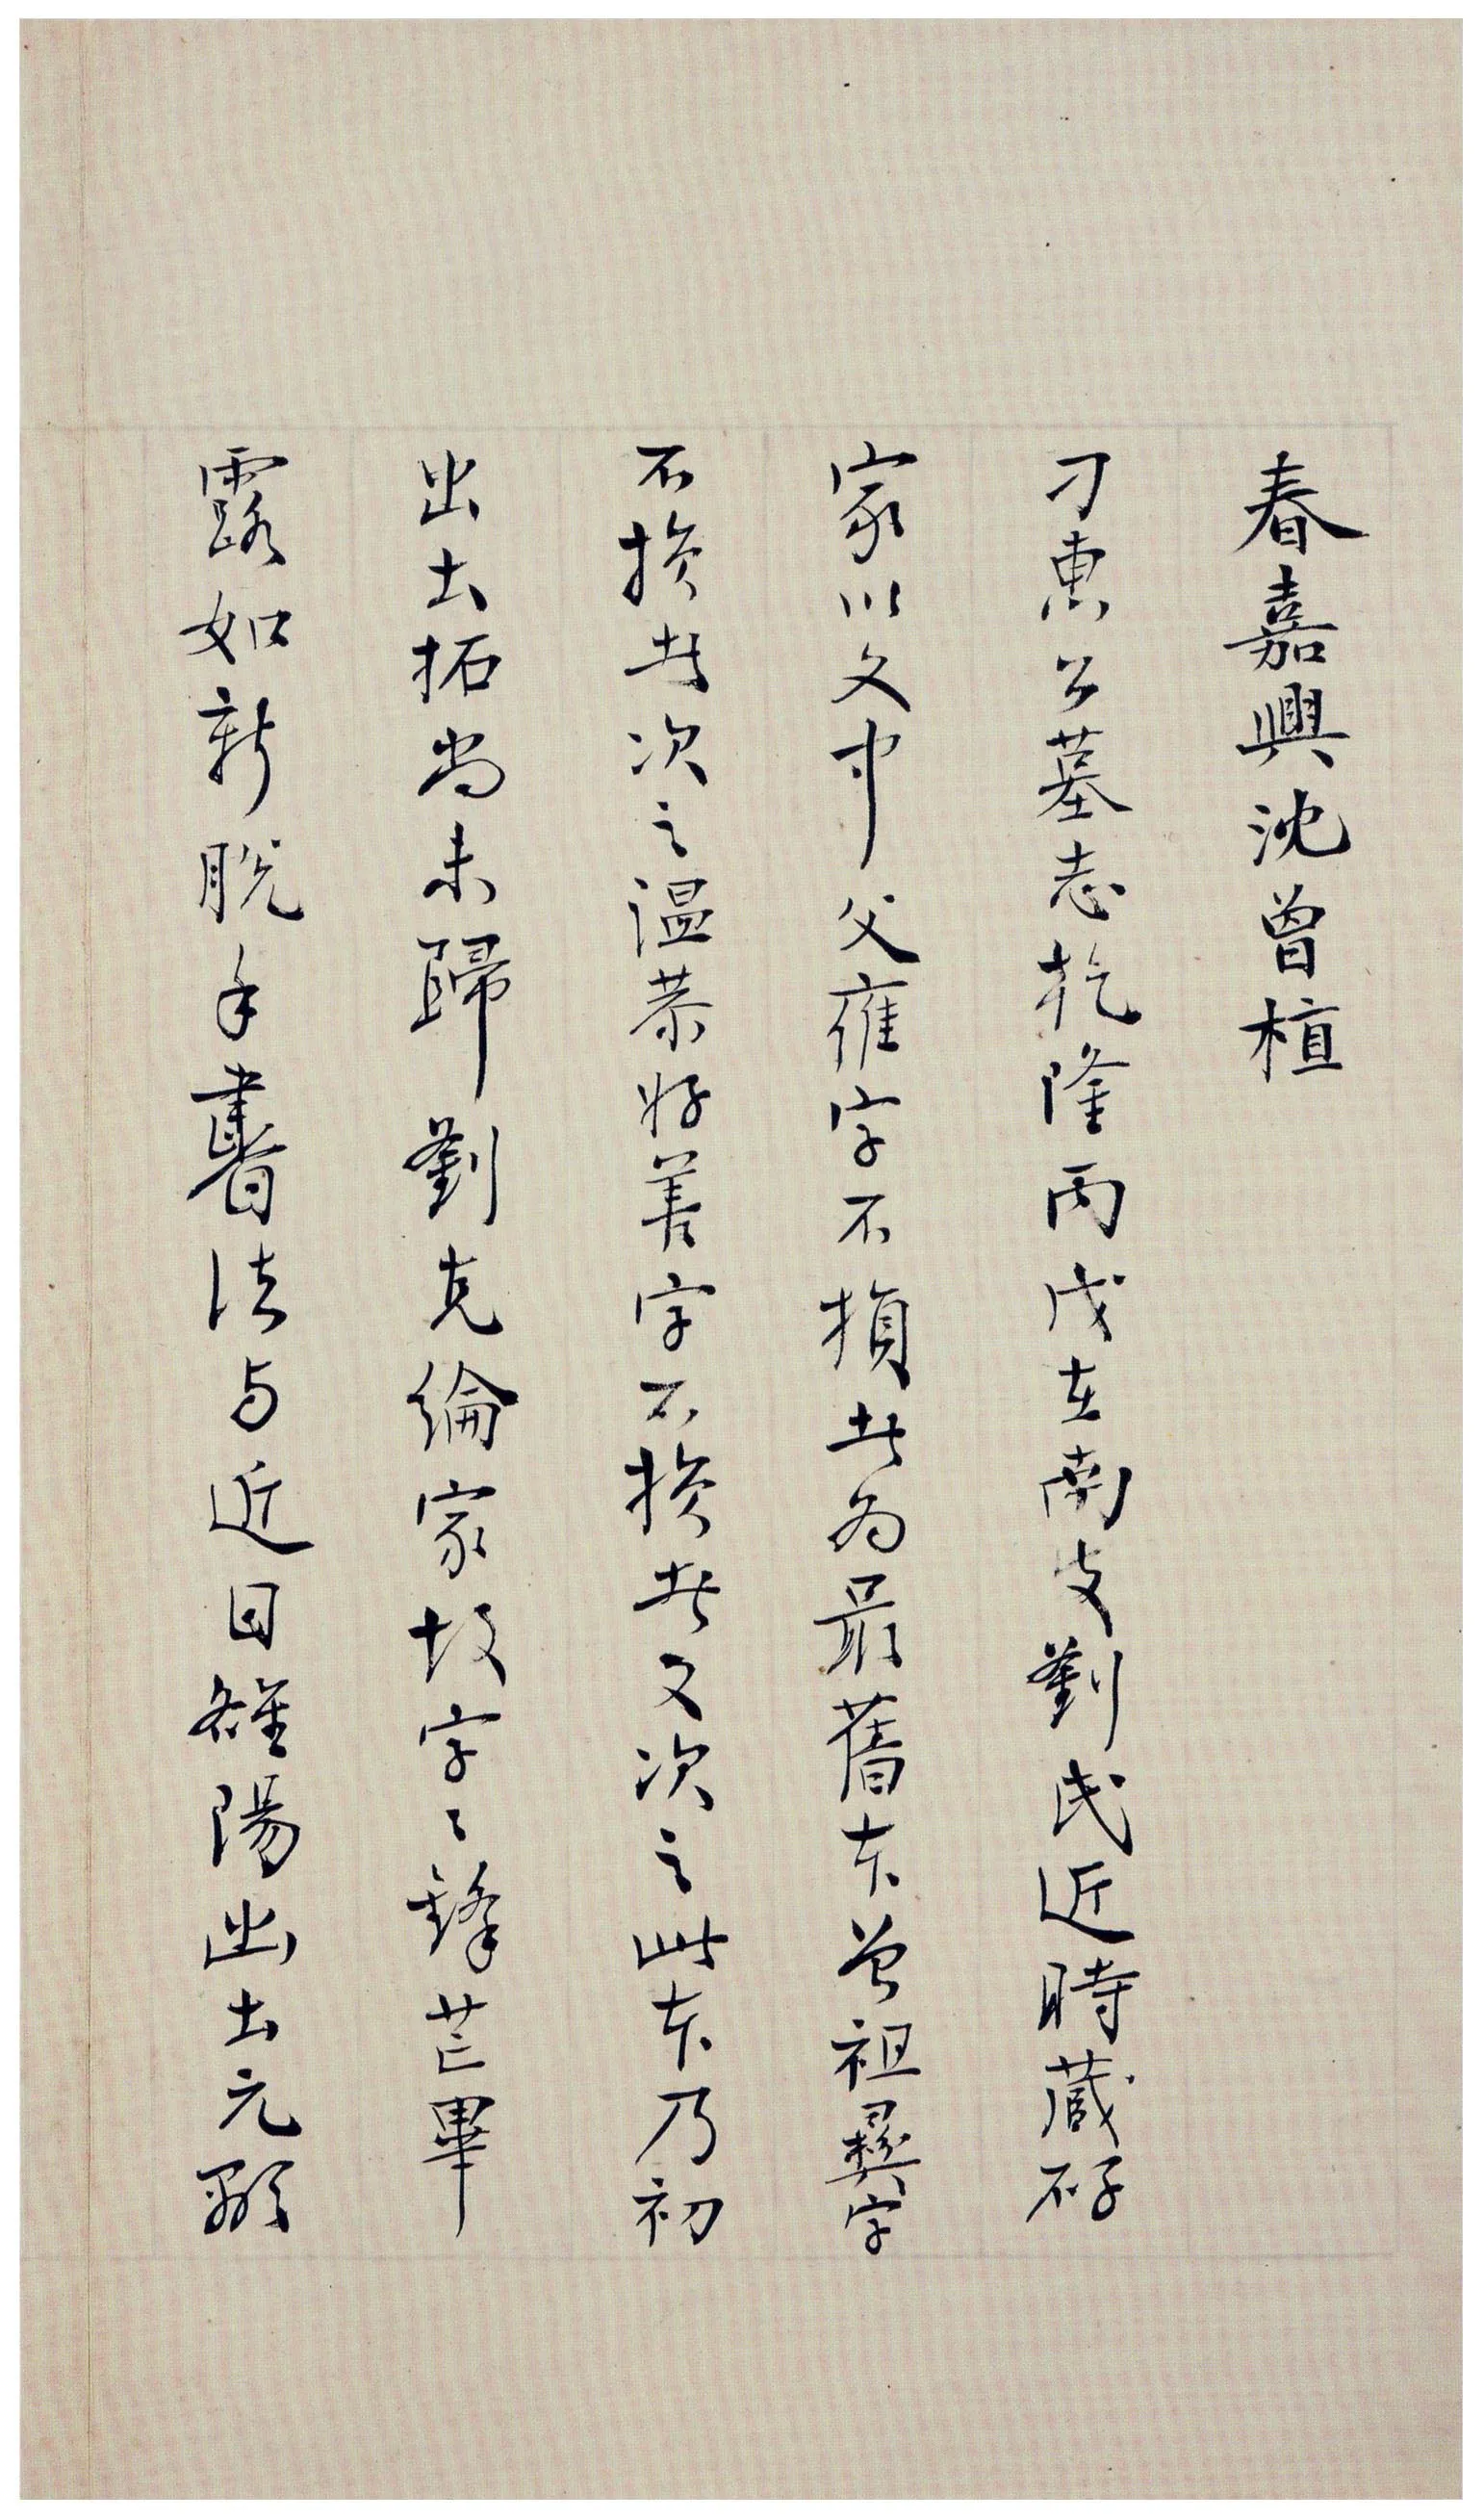 春嘉興沈曾植
刁惠公墓志乾隆丙戌在南皮劉氏近時藏碑
家以文中父雍字不損者為最舊本曾祖彝字
不損者次之温恭好善字不損者又次之此本乃初
出土拓尚未歸劉克綸家故字〻鋒芒畢
露如新脫手書法与近日雒陽出土元顯